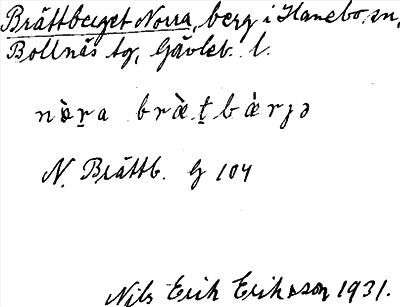 Brättberget Norra, berg i Hanebo sn,
Bollnäs tg, Gävleb. l.
nò̱ṟa bræ̀ṯbæ̀rjə
N. Brättb. G 104
Nils Erik Eriksson 1931.